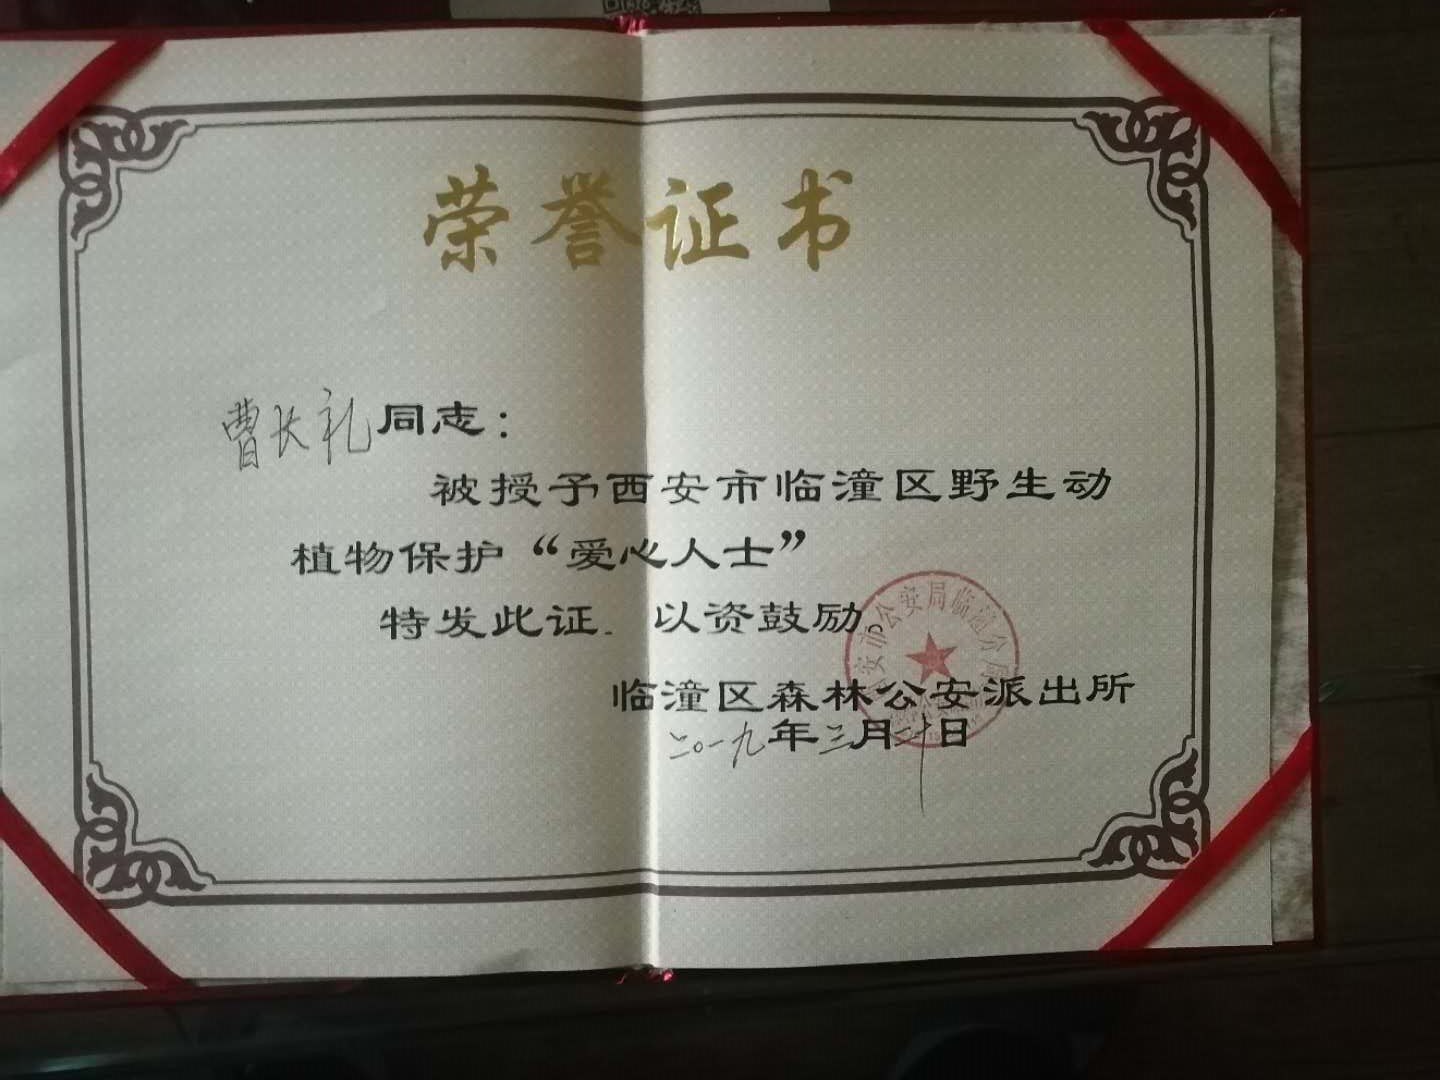 荣誉证书
曹长礼同志：
被授予西安市临潼区野生动
植物保护“爱心人士”
特发此证．以资鼓励。
临潼区森林公安派出所
二〇一九年三月二十日
安市公安局临潼分局